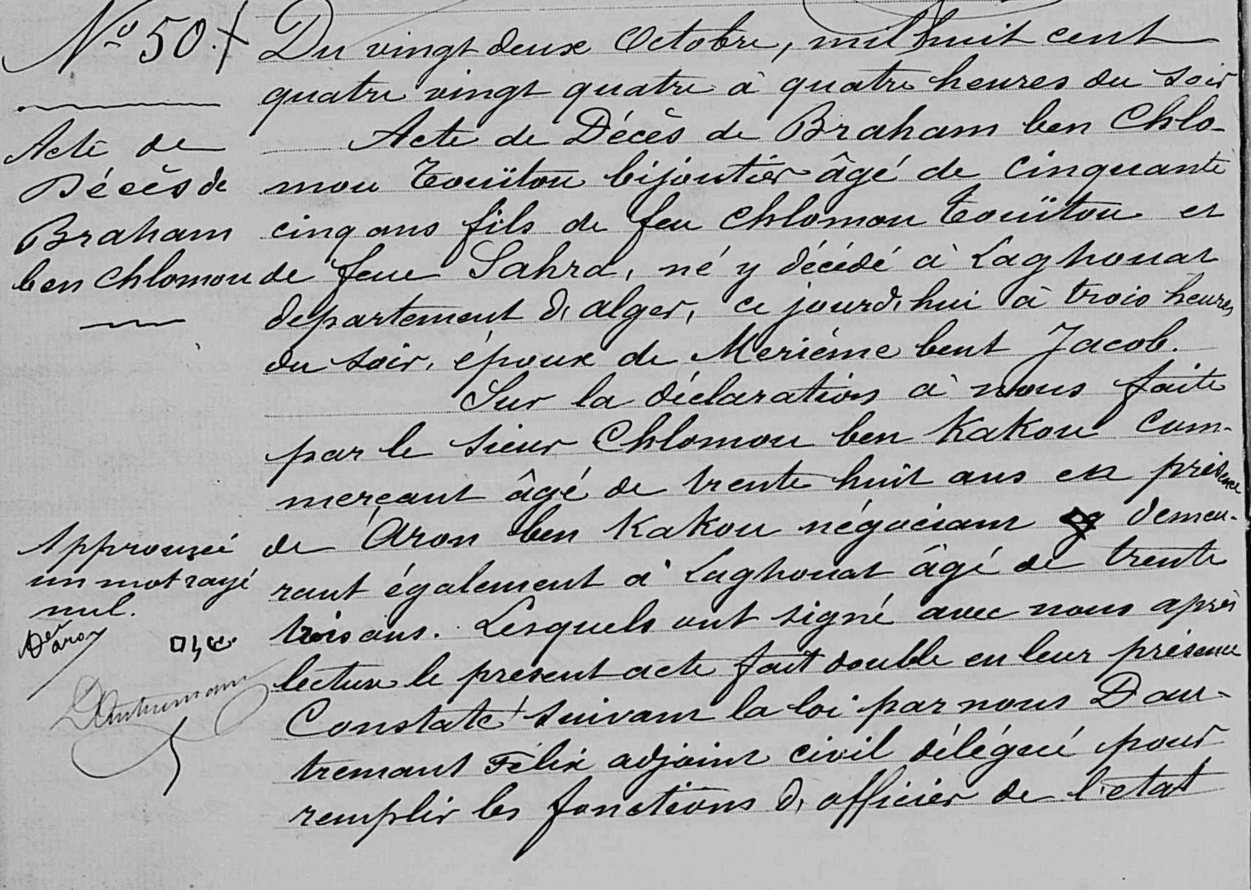 Nº 50.
Acte de
Décès de
Braham
ben Chlomou
Du vingt deux Octobre, mil huit cent
quatre vingt quatre à quatre heures du soir
Acte de Décès de Braham ben Chlo-
mou Touïtou bijoutier âgé de cinquante
cinq ans fils de feu Chlomou Touïtou et
de feue Sahra, né y décédé à Laghouat
département d'alger, ce jourd'hui à trois heures
du soir, époux de Meriéme bent Jacob.
Sur la déclaration à nous faite
par le sieur Chlomou ben Kakou Com-
merçant âgé de trente huit ans en présence
de Aron ben Kakou négociant demeu-
rant également à Laghouat âgé de trente
trois ans. Lesquels ont signé avec nous après
lecture le présent acte fait double en leur présence
Constaté suivant la loi par nous Dau-
tremant Félix adjoint civil délégué pour
remplir les fonctions d'officier de l'état
Approuvé
un mot rayé
nul.
Dautremant